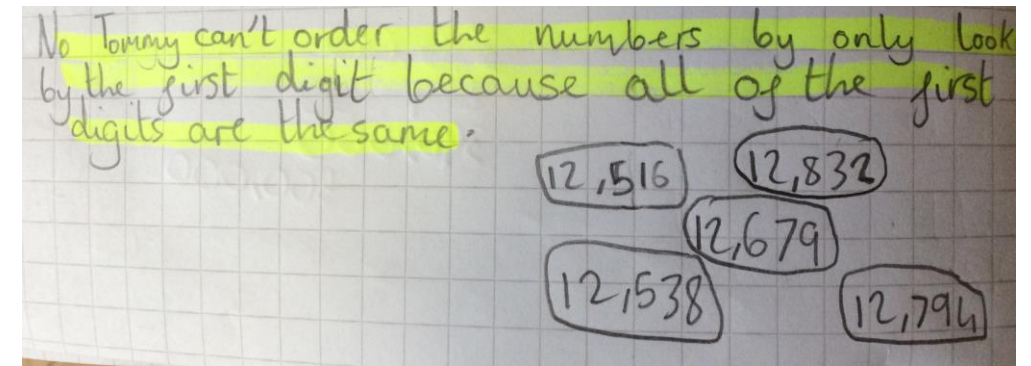 No Tommy can't order the numbers by only look
by the first digit because all of the first
digits are the same.
12,516 12,832
12,679
12,538 12,794